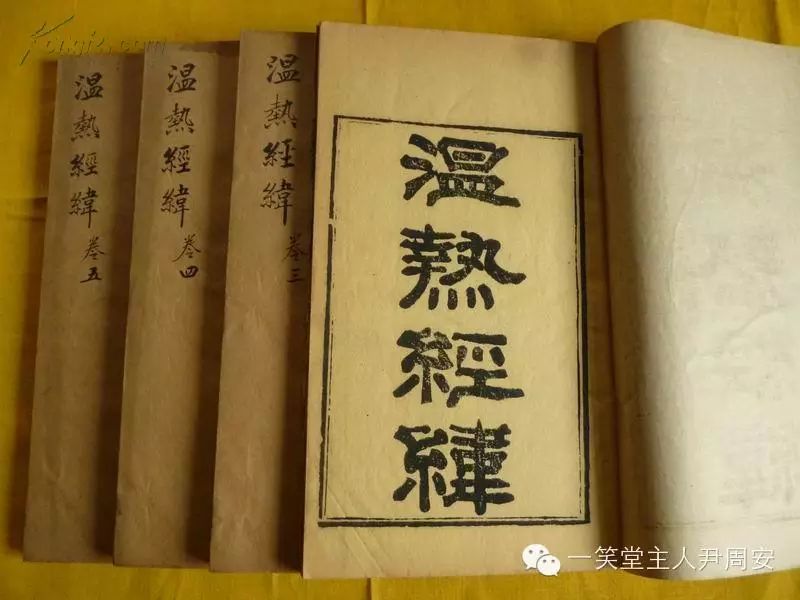 温熱經緯
温熱經緯 卷三
温熱經緯 卷四
温熱經緯 卷五
Kongfz.com
一笑堂主人尹周安